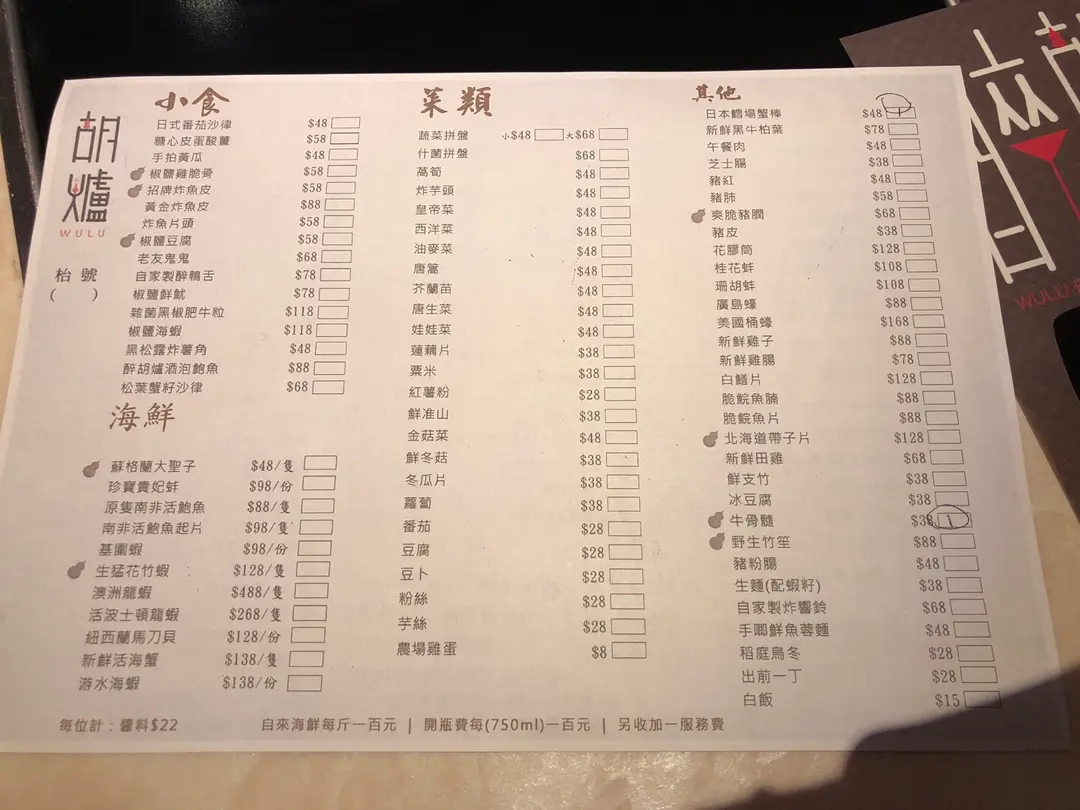 胡爐
WULU
枱號
( )
小食
日式番茄沙律 $48
糖心皮蛋酸薑 $58
手拍黃瓜 $48
椒鹽雞脆骨 $58
招牌炸魚皮 $58
黃金炸魚皮 $88
炸魚片頭 $58
椒鹽豆腐 $58
老友鬼鬼 $68
自家製醉鴨舌 $78
椒鹽鮮魷 $78
雜菌黑椒肥牛粒 $118
椒鹽海蝦 $118
黑松露炸薯角 $48
醉胡爐酒泡鮑魚 $88
松葉蟹籽沙律 $68
海鮮
蘇格蘭大聖子 $48/隻
珍寶貴妃蚌 $98/份
原隻南非活鮑魚 $88/隻
南非活鮑魚起片 $98/隻
基圍蝦 $98/份
生猛花竹蝦 $128/隻
澳洲龍蝦 $488/隻
活波士頓龍蝦 $268/隻
紐西蘭馬刀貝 $128/份
新鮮活海蟹 $138/隻
游水海蝦 $138/份
菜類
蔬菜拼盤 小$48 大$68
什菌拼盤 $68
萵筍 $48
炸芋頭 $48
皇帝菜 $48
西洋菜 $48
油麥菜 $48
唐蒿 $48
芥蘭苗 $48
唐生菜 $48
娃娃菜 $48
蓮藕片 $38
粟米 $38
紅薯粉 $28
鮮准山 $38
金菇菜 $48
鮮冬菇 $38
冬瓜片 $38
蘿蔔 $38
番茄 $28
豆腐 $28
豆卜 $28
粉絲 $28
芋絲 $28
農場雞蛋 $8
其他
日本鱈場蟹棒 $48
新鮮黑牛柏葉 $78
午餐肉 $48
芝士腸 $38
豬紅 $48
豬肺 $58
爽脆豬膶 $68
豬皮 $38
花膠筒 $128
桂花蚌 $108
珊胡蚌 $108
廣島蠔 $88
美國桶蠔 $168
新鮮雞子 $88
新鮮雞腸 $78
白鱔片 $128
脆鯇魚腩 $88
脆鯇魚片 $88
北海道帶子片 $128
新鮮田雞 $68
鮮支竹 $38
冰豆腐 $38
牛骨髓 $38 1
野生竹笙 $88
豬粉腸 $48
生麵(配蝦籽) $38
自家製炸響鈴 $68
手唧鮮魚蓉麵 $48
稻庭烏冬 $28
出前一丁 $28
白飯 $15
每位計：醬料$22
自來海鮮每斤一百元 | 開瓶費每(750ml)一百元 | 另收加一服務費